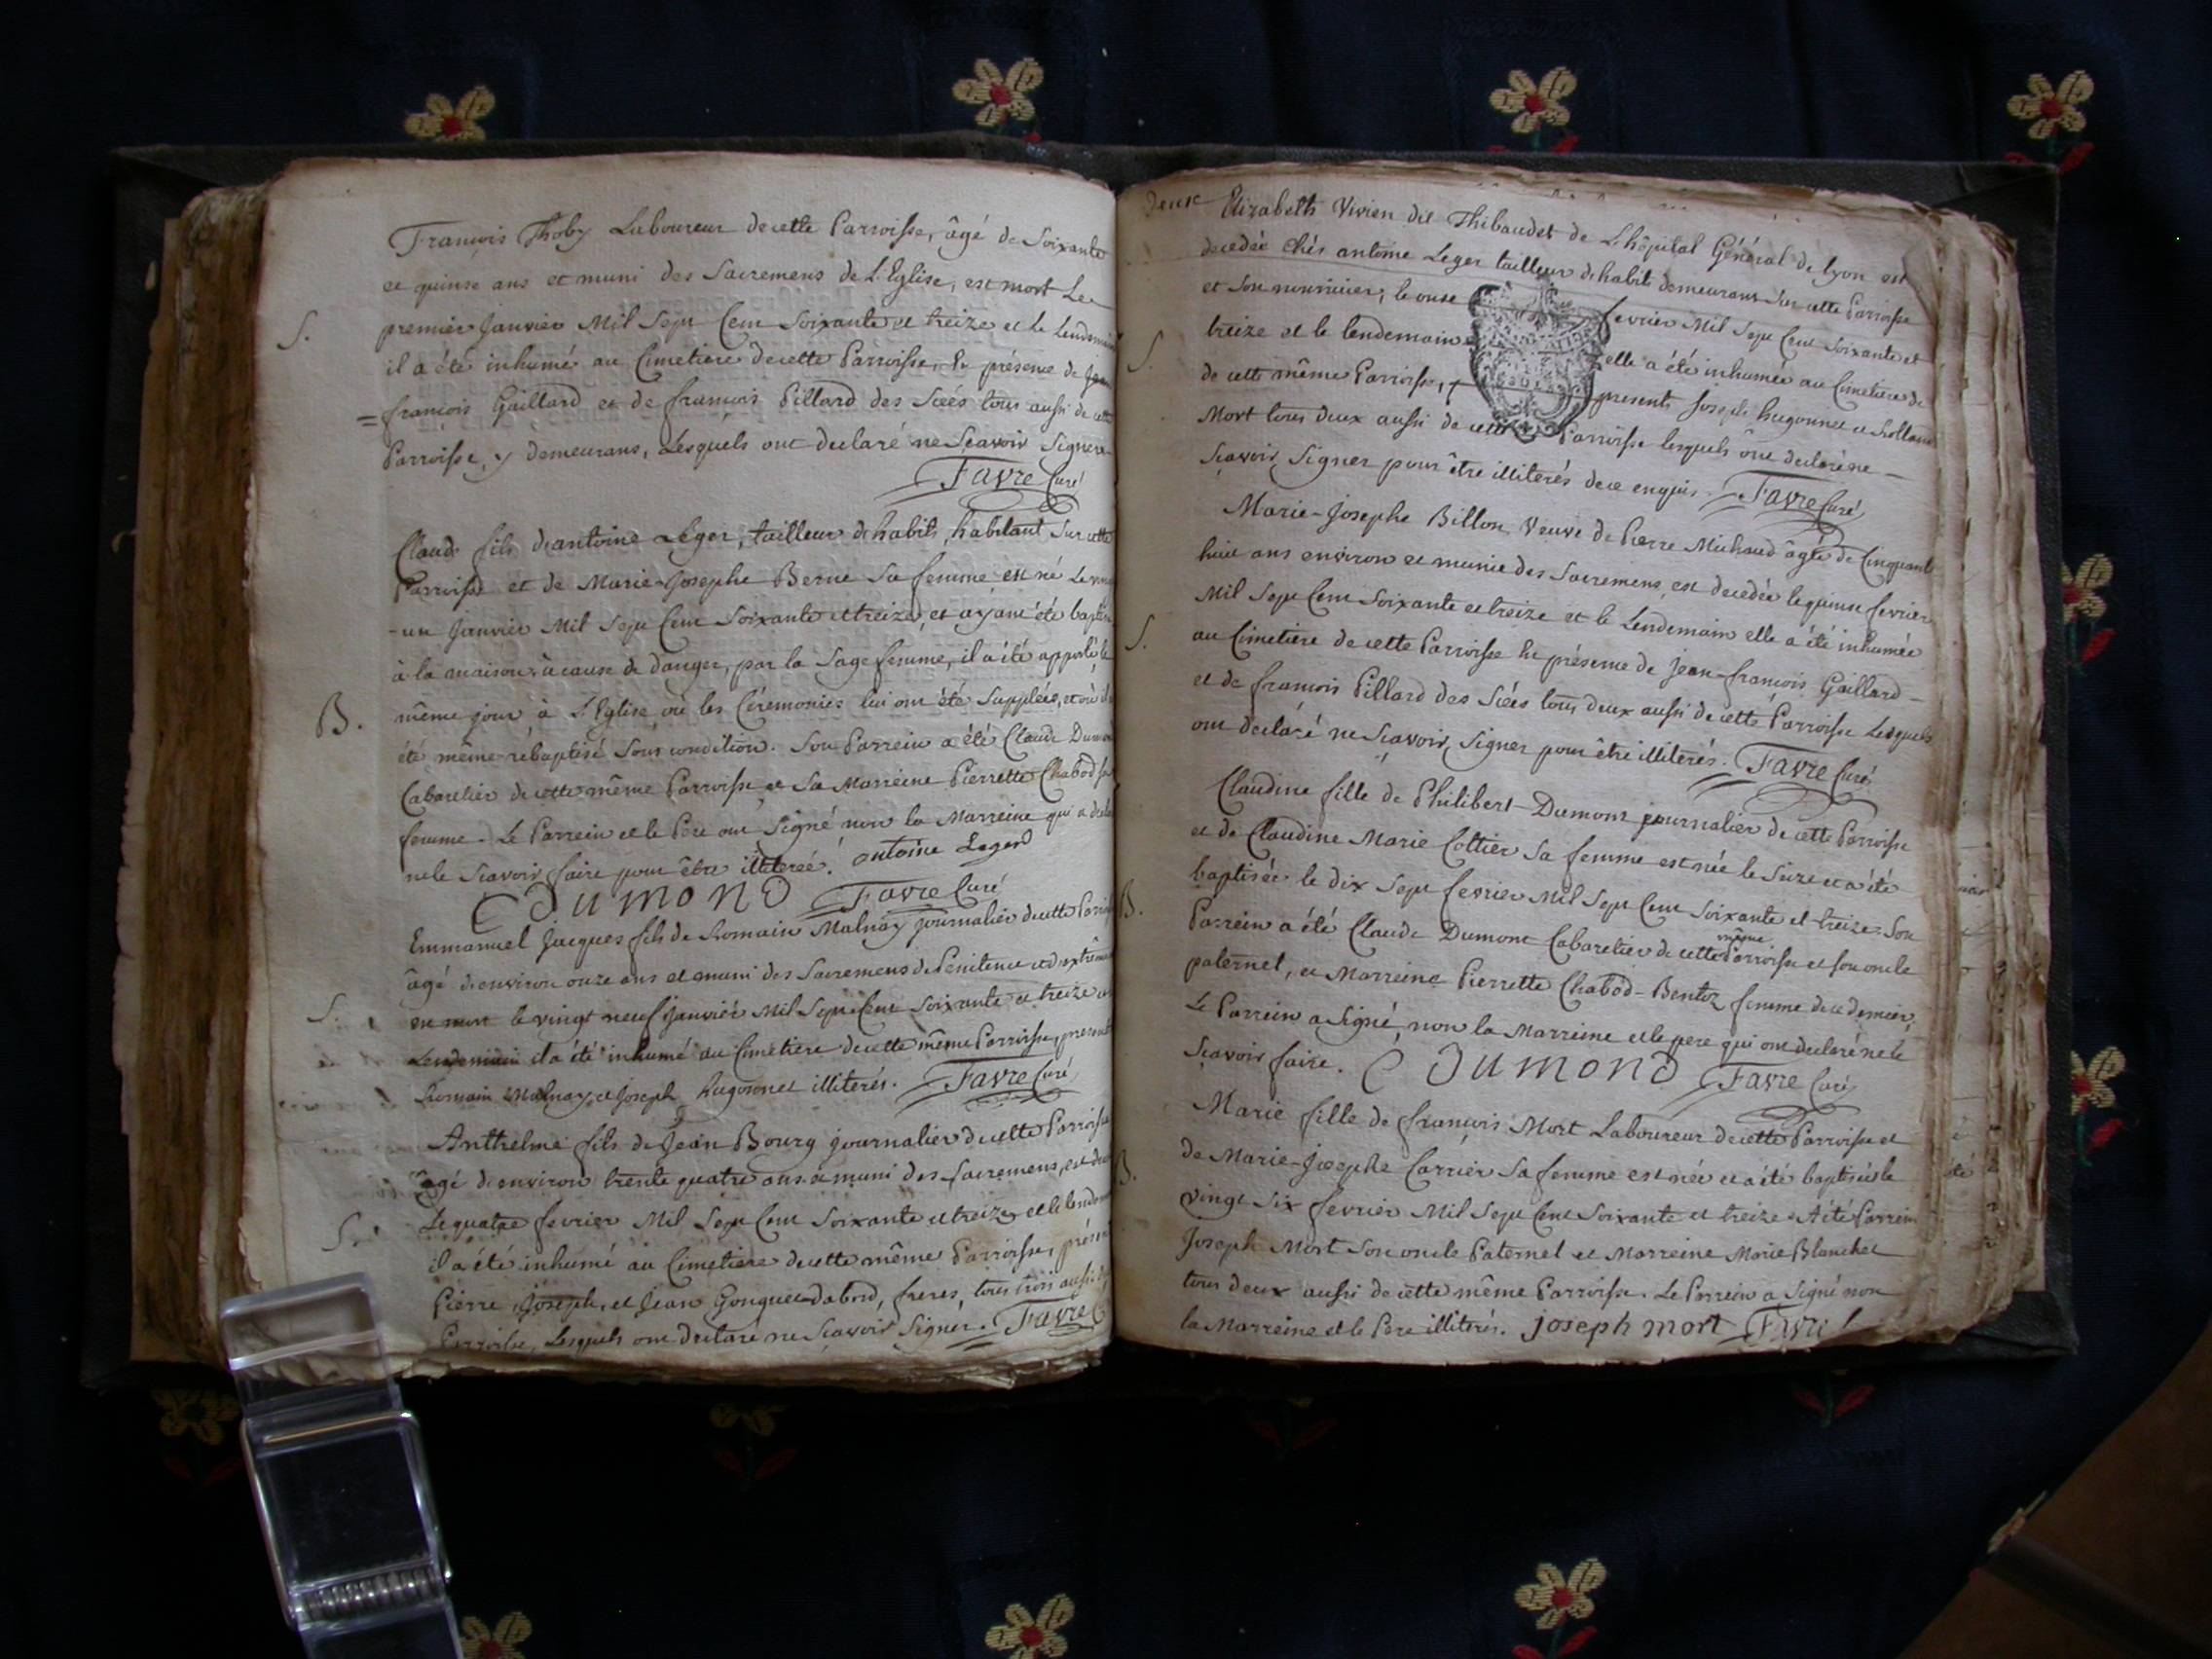 François Thoby Laboureur de cette Parroisse, âgé de Soixante
et quinse ans et muni des Sacremens de L'Eglise, est mort Le
S. premier Janvier Mil Sept Cent Soixante et treize et le Lendemain
il a été inhumé au Cimetiere de cette Parroisse, En présence de Jean
= françois Gaillard et de françois Pillard des Sciés tous aussi de cette
Parroisse, y demeurans, Lesquels ont declaré ne Scavoir Signer.
Favre Curé
Claude fils d'antoine Léger, tailleur d'habits, habitant Sur cette
Parroisse et de Marie-Josephe Berne Sa femme est né Le
-un Janvier Mil Sept Cent Soixante et treize, et ayant été baptisé
à la maison, à cause de danger, par la Sage femme, il a été apporté le
B. même jour à L'Eglise où les Céremonies lui ont été Supplées, et où il a
été même rébaptisé Sous condition. Son Parrein a été Claude Dumont
Cabaretier de cette même Parroisse et Sa Marreine Pierrette Chabod sa
femme. Le Parrein et le Pere ont Signé non la Marreine qui a declaré
ne le Scavoir faire pour être illiterée. antoine Leger
C DUMOND Favre Curé
Emmanuel Jacques fils de Romain Malnay journalier de cette Parroisse
âgé d'environ onze ans et muni des Sacremens de Penitence et d'extrême
S. est mort le vingt neuf Janvier Mil Sept Cent Soixante et treize et
Lendemain il a été inhumé au Cimetiere de cette même Parroisse, presents
Romain Malnay et Joseph Hugonnet illiterés. Favre Curé
Anthelme fils de Jean Bourg journalier de cette Parroisse
âgé d'environ trente quatre ans et muni des Sacremens, est decedé
S. Le quatre fevrier Mil Sept Cent Soixante et treize et le lendemain
il a été inhumé au Cimetiere de cette même Parroisse, présents
Pierre, Joseph, et Jean Gonguet-dabord, freres, tous trois aussi de
Parroisse, Lesquels ont declaré ne Scavoir Signer. Favre C
Elizabeth Vivien dit Thibaudet de L'hôpital Général de Lyon est
decedée chés antoine Leger tailleur d'habits demeurant Sur cette Parroisse
et Son nourricier, le onse fevrier Mil Sept Cent Soixante et
S. treize et le lendemain elle a été inhumée au Cimetiere de
de cette même Parroisse, presents Joseph hugonnet et Rolland
Mort tous deux aussi de cette Parroisse lesquels ont declaré ne
Scavoir Signer pour être illiterés de ce enquis. Favre Curé
Marie-Josephe Billon Veuve de Pierre Michaud âgée de Cinquante
huit ans environ et munie des Sacremens, est decedée le quinse fevrier
Mil Sept Cent Soixante et treize et le Lendemain elle a été inhumée
S. au Cimetiere de cette Parroisse En présence de Jean-françois Gaillard
et de françois Pillard des Sciés tous deux aussi de cette Parroisse Lesquels
ont declaré ne Scavoir Signer pour être illiterés. Favre Curé
Claudine fille de Philibert Dumont journalier de cette Parroisse
et de Claudine Marie Cottier Sa femme est née le Suze et a été
B. baptisée le dix Sept fevrier Mil Sept Cent Soixante et treize. Son
Parrein a été Claude Dumont Cabaretier de cette même Parroisse et son oncle
paternel, et Marreine Pierrette Chabod-Bentoz femme de ce dernier.
Le Parrein a Signé, non la Marreine et le pere qui ont declaré ne le
Scavoir faire. C DUMOND Favre Curé
Marie fille de françois Mort Laboureur de cette Parroisse et
B. de Marie-Josephe Carrier Sa femme est née et a été baptisée le
vingt Six fevrier Mil Sept Cent Soixante et treize. A été Parrein
Joseph Mort Son oncle Paternel et Marreine Marie Blanchet
tous deux aussi de cette même Parroisse. Le Parrein a Signé non
la Marreine et le Pere illiterés. joseph mort Favre